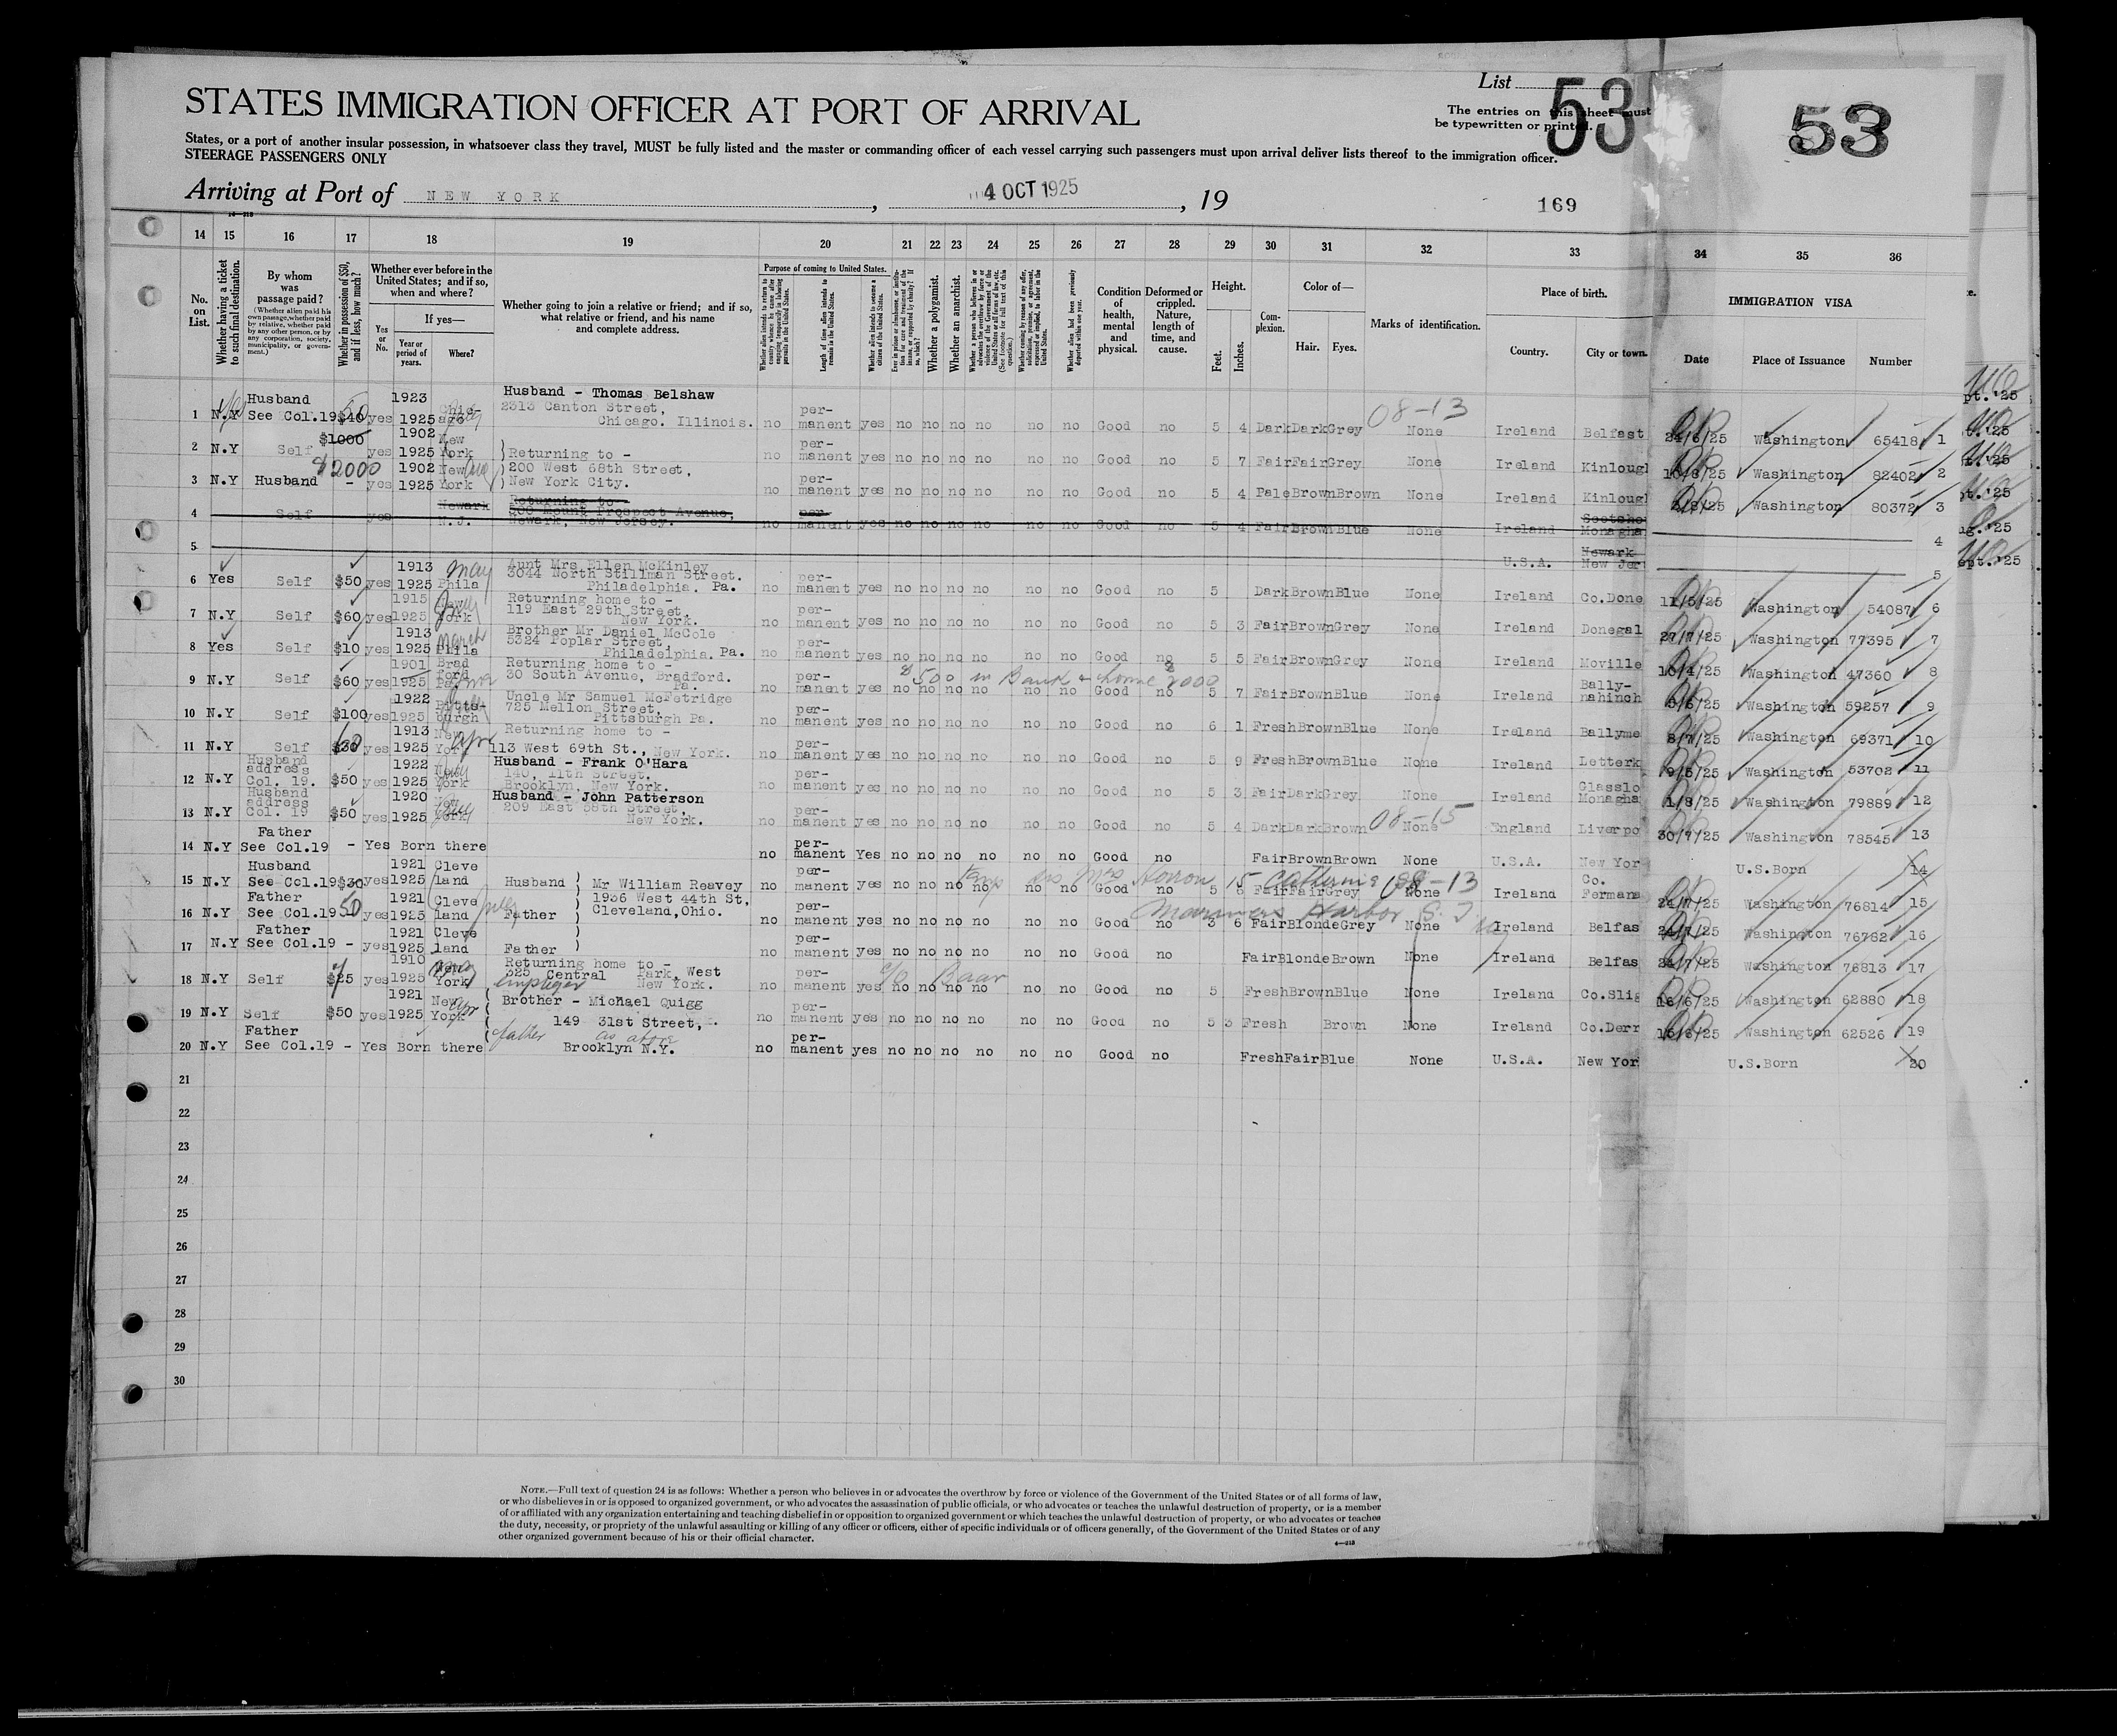 List 53
53
STATES IMMIGRATION OFFICER AT PORT OF ARRIVAL
The entries on this sheet must
be typewritten or printed.
States, or a port of another insular possession, in whatsoever class they travel, MUST be fully listed and the master or commanding officer of each vessel carrying such passengers must upon arrival deliver lists thereof to the immigration officer.
STEERAGE PASSENGERS ONLY
Arriving at Port of NEW YORK, 4 OCT 1925, 19
169
14 15 16 17 18 19 20 21 22 23 24 25 26 27 28 29 30 31 32 33 34 35 36
No. on List.
Whether having a ticket to such final destination.
By whom was passage paid?
(Whether alien paid his own passage, whether paid by relative, whether paid by any other person, or by any corporation, society, municipality, or government.)
Whether in possession of $50, and if less, how much?
Whether ever before in the United States; and if so, when and where?
Yes or No.
If yes—
Year or period of years.
Where?
Whether going to join a relative or friend; and if so, what relative or friend, and his name and complete address.
Purpose of coming to United States.
Length of time alien intends to remain in the United States.
Whether alien intends to become a citizen of the United States.
Whether a polygamist.
Whether an anarchist.
Condition of health, mental and physical.
Deformed or crippled. Nature, length of time, and cause.
Height.
Feet.
Inches.
Complexion.
Color of—
Hair. Eyes.
Marks of identification.
Place of birth.
Country.
City or town.
IMMIGRATION VISA
Date
Place of Issuance
Number
1 N.Y Husband See Col.19 $40 50 yes 1923 1925 Chicago Husband - Thomas Belshaw 2313 Canton Street, Chicago. Illinois. no permanent yes no no no no no no Good no 5 4 Dark Dark Grey None 08-13 Ireland Belfast 24/6/25 Washington 65418 1
2 N.Y Self $1000 yes 1902 1925 New York Returning to - no permanent yes no no no no no no Good no 5 7 Fair Fair Grey None Ireland Kinlough 10/8/25 Washington 82402 2
3 N.Y Husband $2000 - yes 1902 1925 New York 200 West 68th Street, New York City. no permanent yes no no no no no no Good no 5 4 Pale Brown Brown None Ireland Kinlough 3/8/25 Washington 80372 3
4 Self yes Newark N.J. Returning to - 500 Mount Prospect Avenue, Newark, New Jersey. no permanent yes no no no no no no Good no 5 4 Fair Brown Blue None Ireland Monagha 4
5 U.S.A. Newark New Jer 5
6 Yes Self $50 yes 1913 1925 May Phila Aunt Mrs Ellen McKinley 3044 North Stillman Street. Philadelphia. Pa. no permanent yes no no no no no no Good no 5 Dark Brown Blue None Ireland Co.Done 11/5/25 Washington 54087 6
7 N.Y Self $60 yes 1915 1925 New York Returning home to - 119 East 29th Street, New York. no permanent yes no no no no no no Good no 5 3 Fair Brown Grey None Ireland Donegal 27/7/25 Washington 77395 7
8 Yes Self $10 yes 1913 1925 March Phila Brother Mr Daniel McCole 5324 Poplar Street, Philadelphia. Pa. no permanent yes no no no no no no Good no 5 5 Fair Brown Grey None Ireland Moville 10/4/25 Washington 47360 8
9 N.Y Self $60 yes 1901 1925 Bradford Pa Returning home to - 30 South Avenue, Bradford. Pa. no permanent yes no no no no no no Good no 5 7 Fair Brown Blue None Ireland Bally-nahinch 9/6/25 Washington 59257 9
$500 in Bank & home $2000
10 N.Y Self $100 yes 1922 1925 Pittsburgh Uncle Mr Samuel McFetridge 725 Mellon Street, Pittsburgh Pa. no permanent yes no no no no no no Good no 6 1 Fresh Brown Blue None Ireland Ballyme 8/7/25 Washington 69371 10
11 N.Y Self $30 yes 1913 1925 New York Returning home to - 113 West 69th St., New York. no permanent yes no no no no no no Good no 5 9 Fresh Brown Blue None Ireland Letterk 9/5/25 Washington 53702 11
12 N.Y Husband address Col. 19. $50 yes 1922 1925 New York Husband - Frank O'Hara 140, 11th Street. Brooklyn, New York. no permanent yes no no no no no no Good no 5 3 Fair Dark Grey None Ireland Glasslo Monagha 1/8/25 Washington 79889 12
13 N.Y Husband address Col. 19 $50 yes 1920 1925 New York Husband - John Patterson 209 East 88th Street, New York. no permanent yes no no no no no no Good no 5 4 Dark Dark Brown None 08-15 England Liverpo 30/7/25 Washington 78545 13
14 N.Y Father See Col.19 - Yes Born there no permanent Yes no no no no no no Good no Fair Brown Brown None U.S.A. New Yor U.S.Born 14
15 N.Y Husband See Col.19 $30 yes 1921 1925 Cleveland Husband Mr William Reavey no permanent yes no no no no no no Good no 5 6 Fair Fair Grey None 08-13 Ireland Co. Fermana 24/7/25 Washington 76814 15
16 N.Y Father See Col.19 50 yes 1921 1925 Cleveland Father 1936 West 44th St, Cleveland, Ohio. no permanent yes no no no no no no Good no 3 6 Fair Blonde Grey None Ireland Belfas 24/7/25 Washington 76782 16
Mariners Harbor S.I.
17 N.Y Father See Col.19 - yes 1921 1925 Cleveland Father no permanent yes no no no no no no Good no Fair Blonde Brown None Ireland Belfas 24/7/25 Washington 76813 17
18 N.Y Self $25 yes 1910 1925 New York Returning home to - 325 Central Park, West New York. employer c/o Baar no permanent yes no no no no no no Good no 5 Fresh Brown Blue None Ireland Co.Slig 16/6/25 Washington 62880 18
19 N.Y Self $50 yes 1921 1925 New York Brother - Michael Quigg 149 31st Street, no permanent yes no no no no no no Good no 5 3 Fresh Brown None Ireland Co.Derr 16/6/25 Washington 62526 19
20 N.Y Father See Col.19 - Yes Born there father as above Brooklyn N.Y. no permanent yes no no no no no no Good no Fresh Fair Blue None U.S.A. New Yor U.S.Born 20
21
22
23
24
25
26
27
28
29
30
NOTE.—Full text of question 24 is as follows: Whether a person who believes in or advocates the overthrow by force or violence of the Government of the United States or of all forms of law,
or who disbelieves in or is opposed to organized government, or who advocates the assassination of public officials, or who advocates or teaches the unlawful destruction of property, or is a member
of or affiliated with any organization entertaining and teaching disbelief in or opposition to organized government or which teaches the unlawful destruction of property, or who advocates or teaches
the duty, necessity, or propriety of the unlawful assaulting or killing of any officer or officers, either of specific individuals or of officers generally, of the Government of the United States or of any
other organized government because of his or their official character.